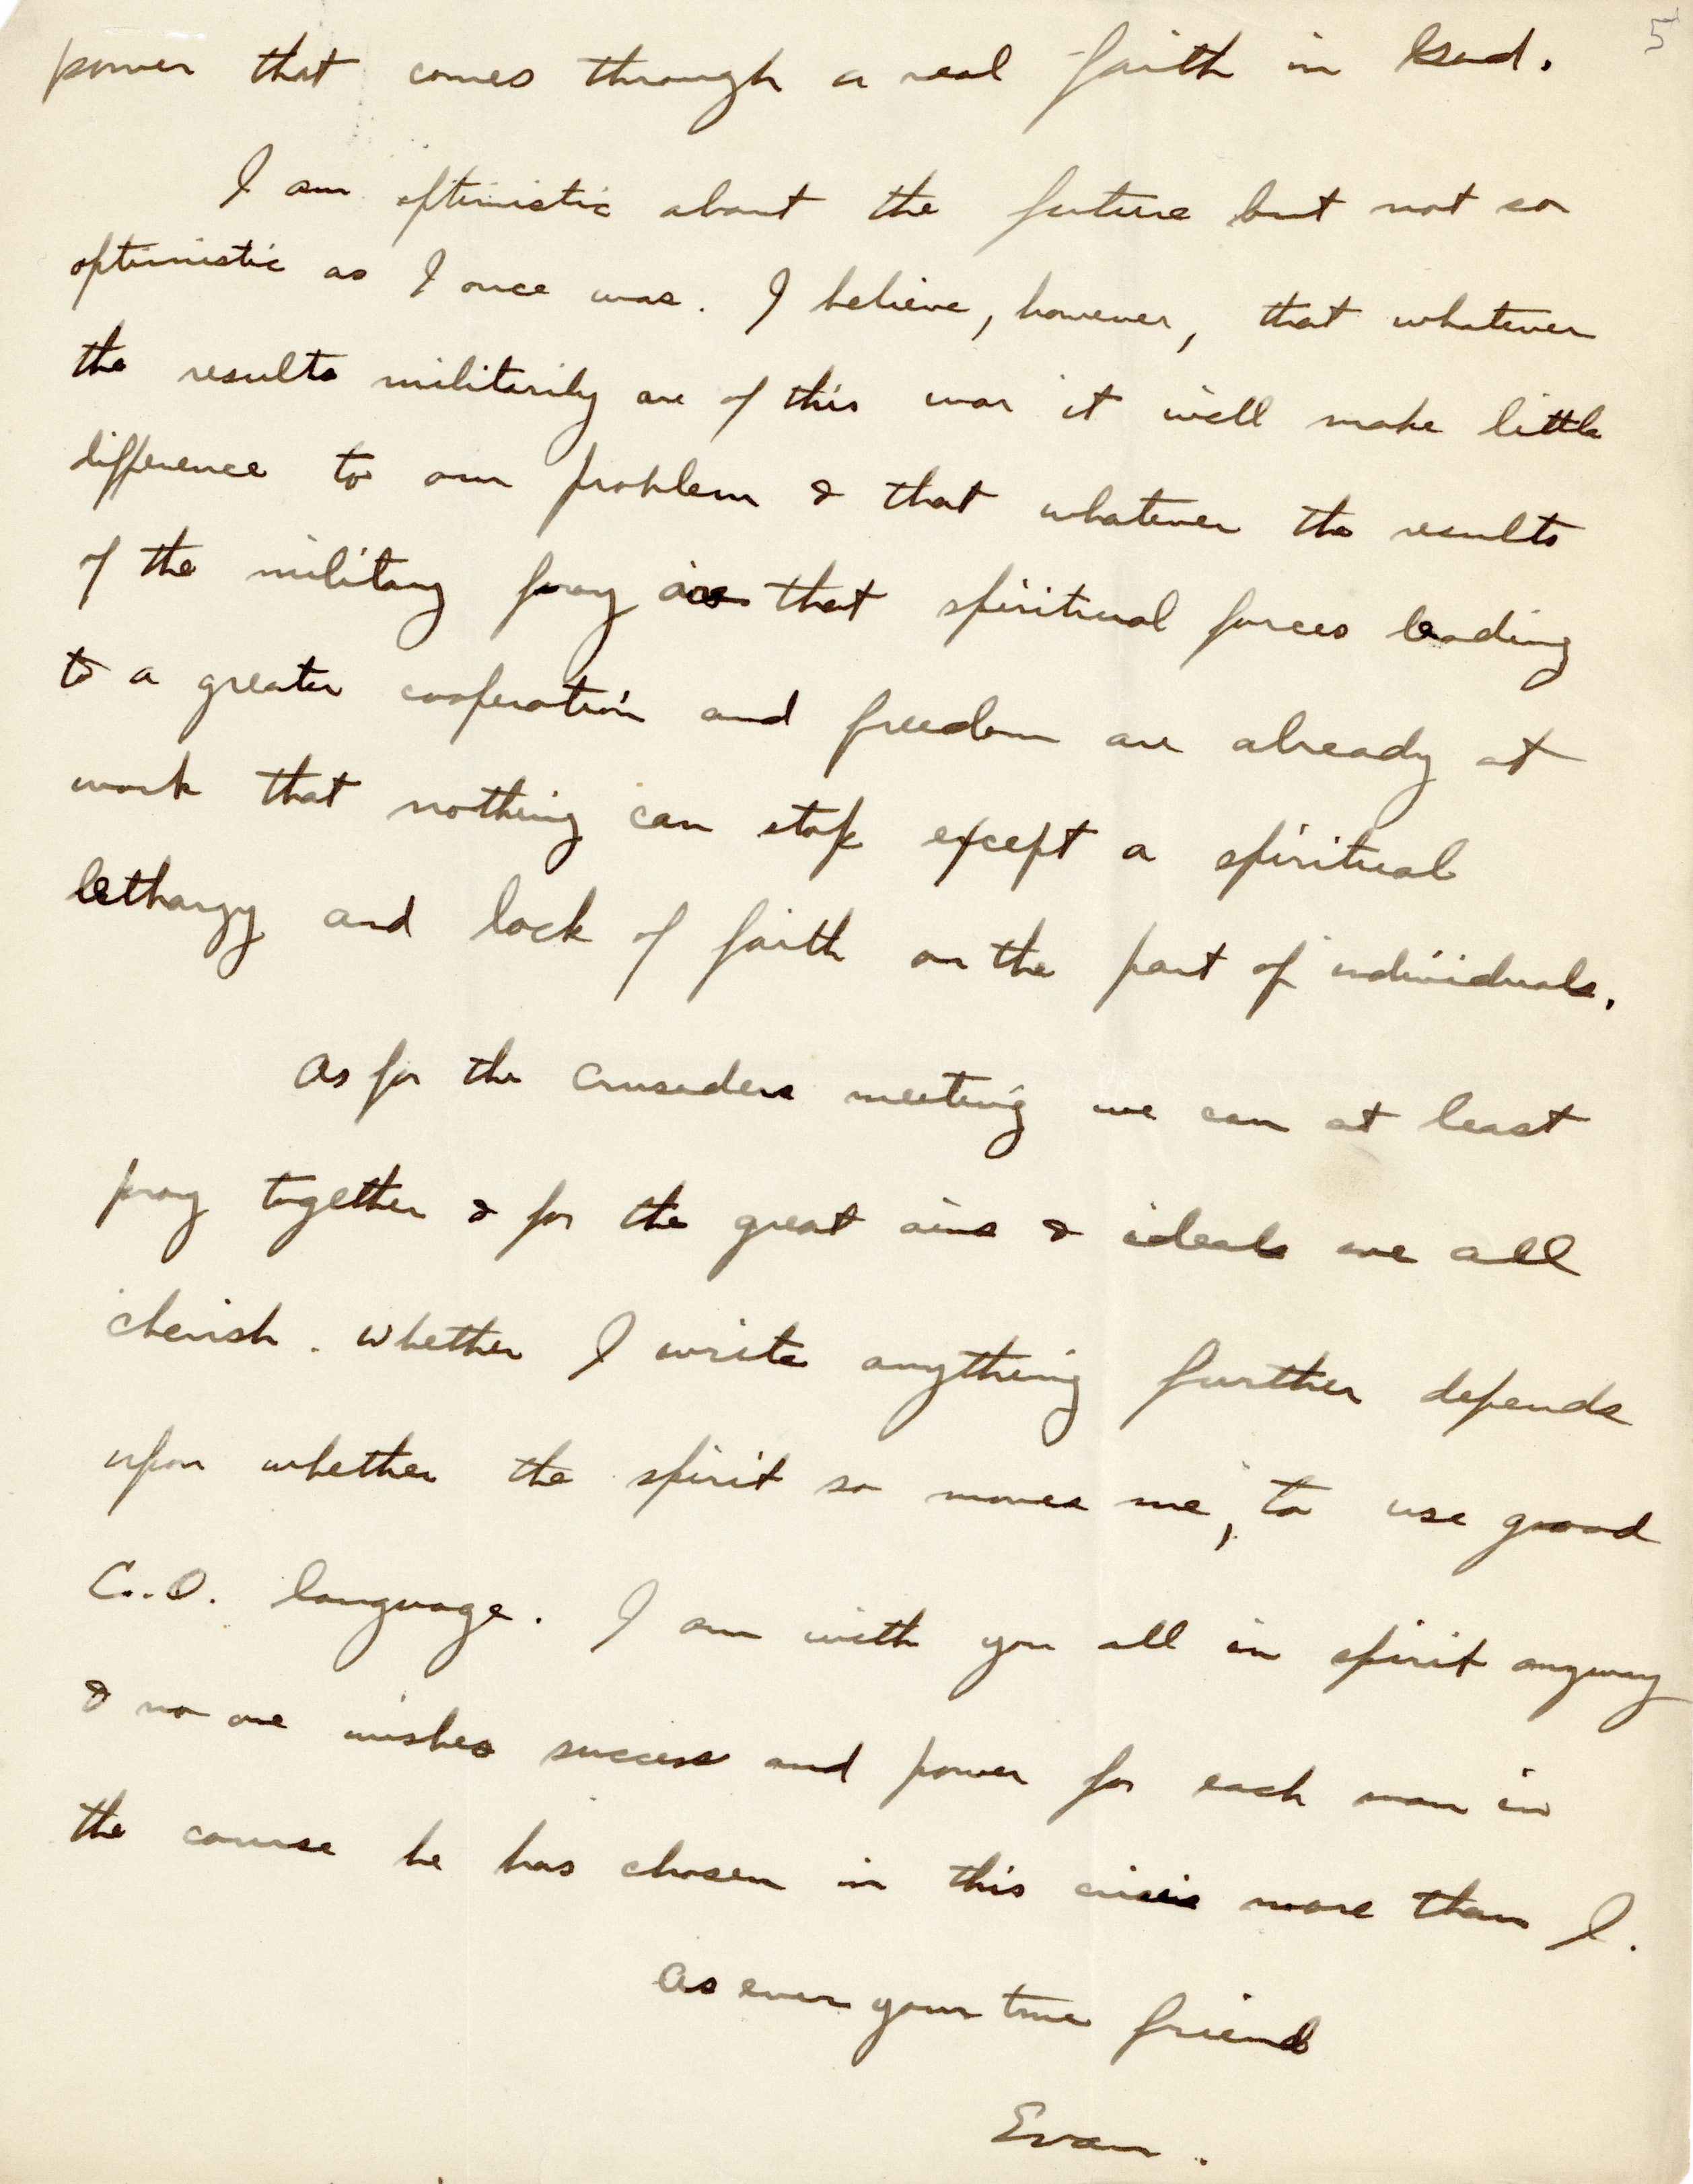 5
power that comes through a real faith in God.
I am optimistic about the future but not so
optimistic as I once was. I believe, however, that whatever
the results militarily are of this war it will make little
difference to our problem & that whatever the results
of the military fray are that spiritual forces leading
to a greater cooperation and freedom are already at
work that nothing can stop except a spiritual
lethargy and lack of faith on the part of individuals.
As for the Crusaders meeting we can at least
pray together & for the great aims & ideals we all
cherish. Whether I write anything further depends
upon whether the spirit so moves me, to use good
C.O. language. I am with you all in spirit anyway
& no one wishes success and power for each man in
the course he has chosen in this crisis more than I.
As ever your true friend
Evan.